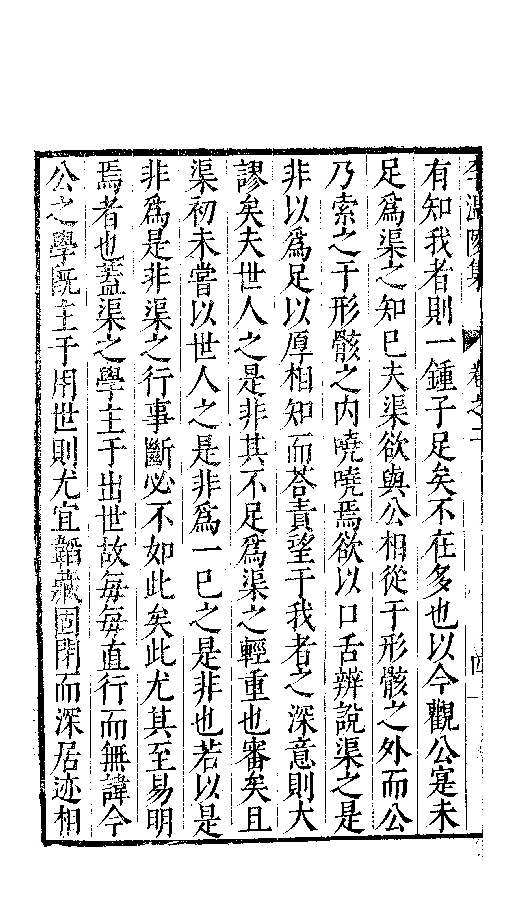 李溫陵集 卷之二 四
有知我者則一鍾子足矣不在多也以今觀公寔未
足爲渠之知巳夫渠欲與公相從于形骸之外而公
乃索之于形骸之内嘵嘵焉欲以口舌辨說渠之是
非以爲足以厚相知而荅責望于我者之深意則大
謬矣夫世人之是非其不足爲渠之輕重也審矣且
渠初未嘗以世人之是非爲一巳之是非也若以是
非爲是非渠之行事斷必不如此矣此尤其至易明
焉者也蓋渠之學主于出世故每每直行而無諱今
公之學旣主于用世則尤宜韜藏固閉而深居迹相